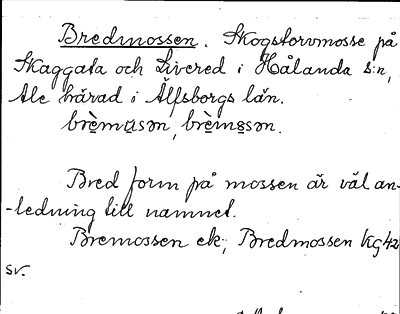 Bredmossen. Skogstorvmosse på
Skaggata och Livered i Hålanda s:n,
Ale härad i Älfsborgs län.
brèmɑsən, brèmosən.
Bred form på mossen är väl an-
-ledning till namnet.
Bremossen ek; Bredmossen Kg 42
sv.